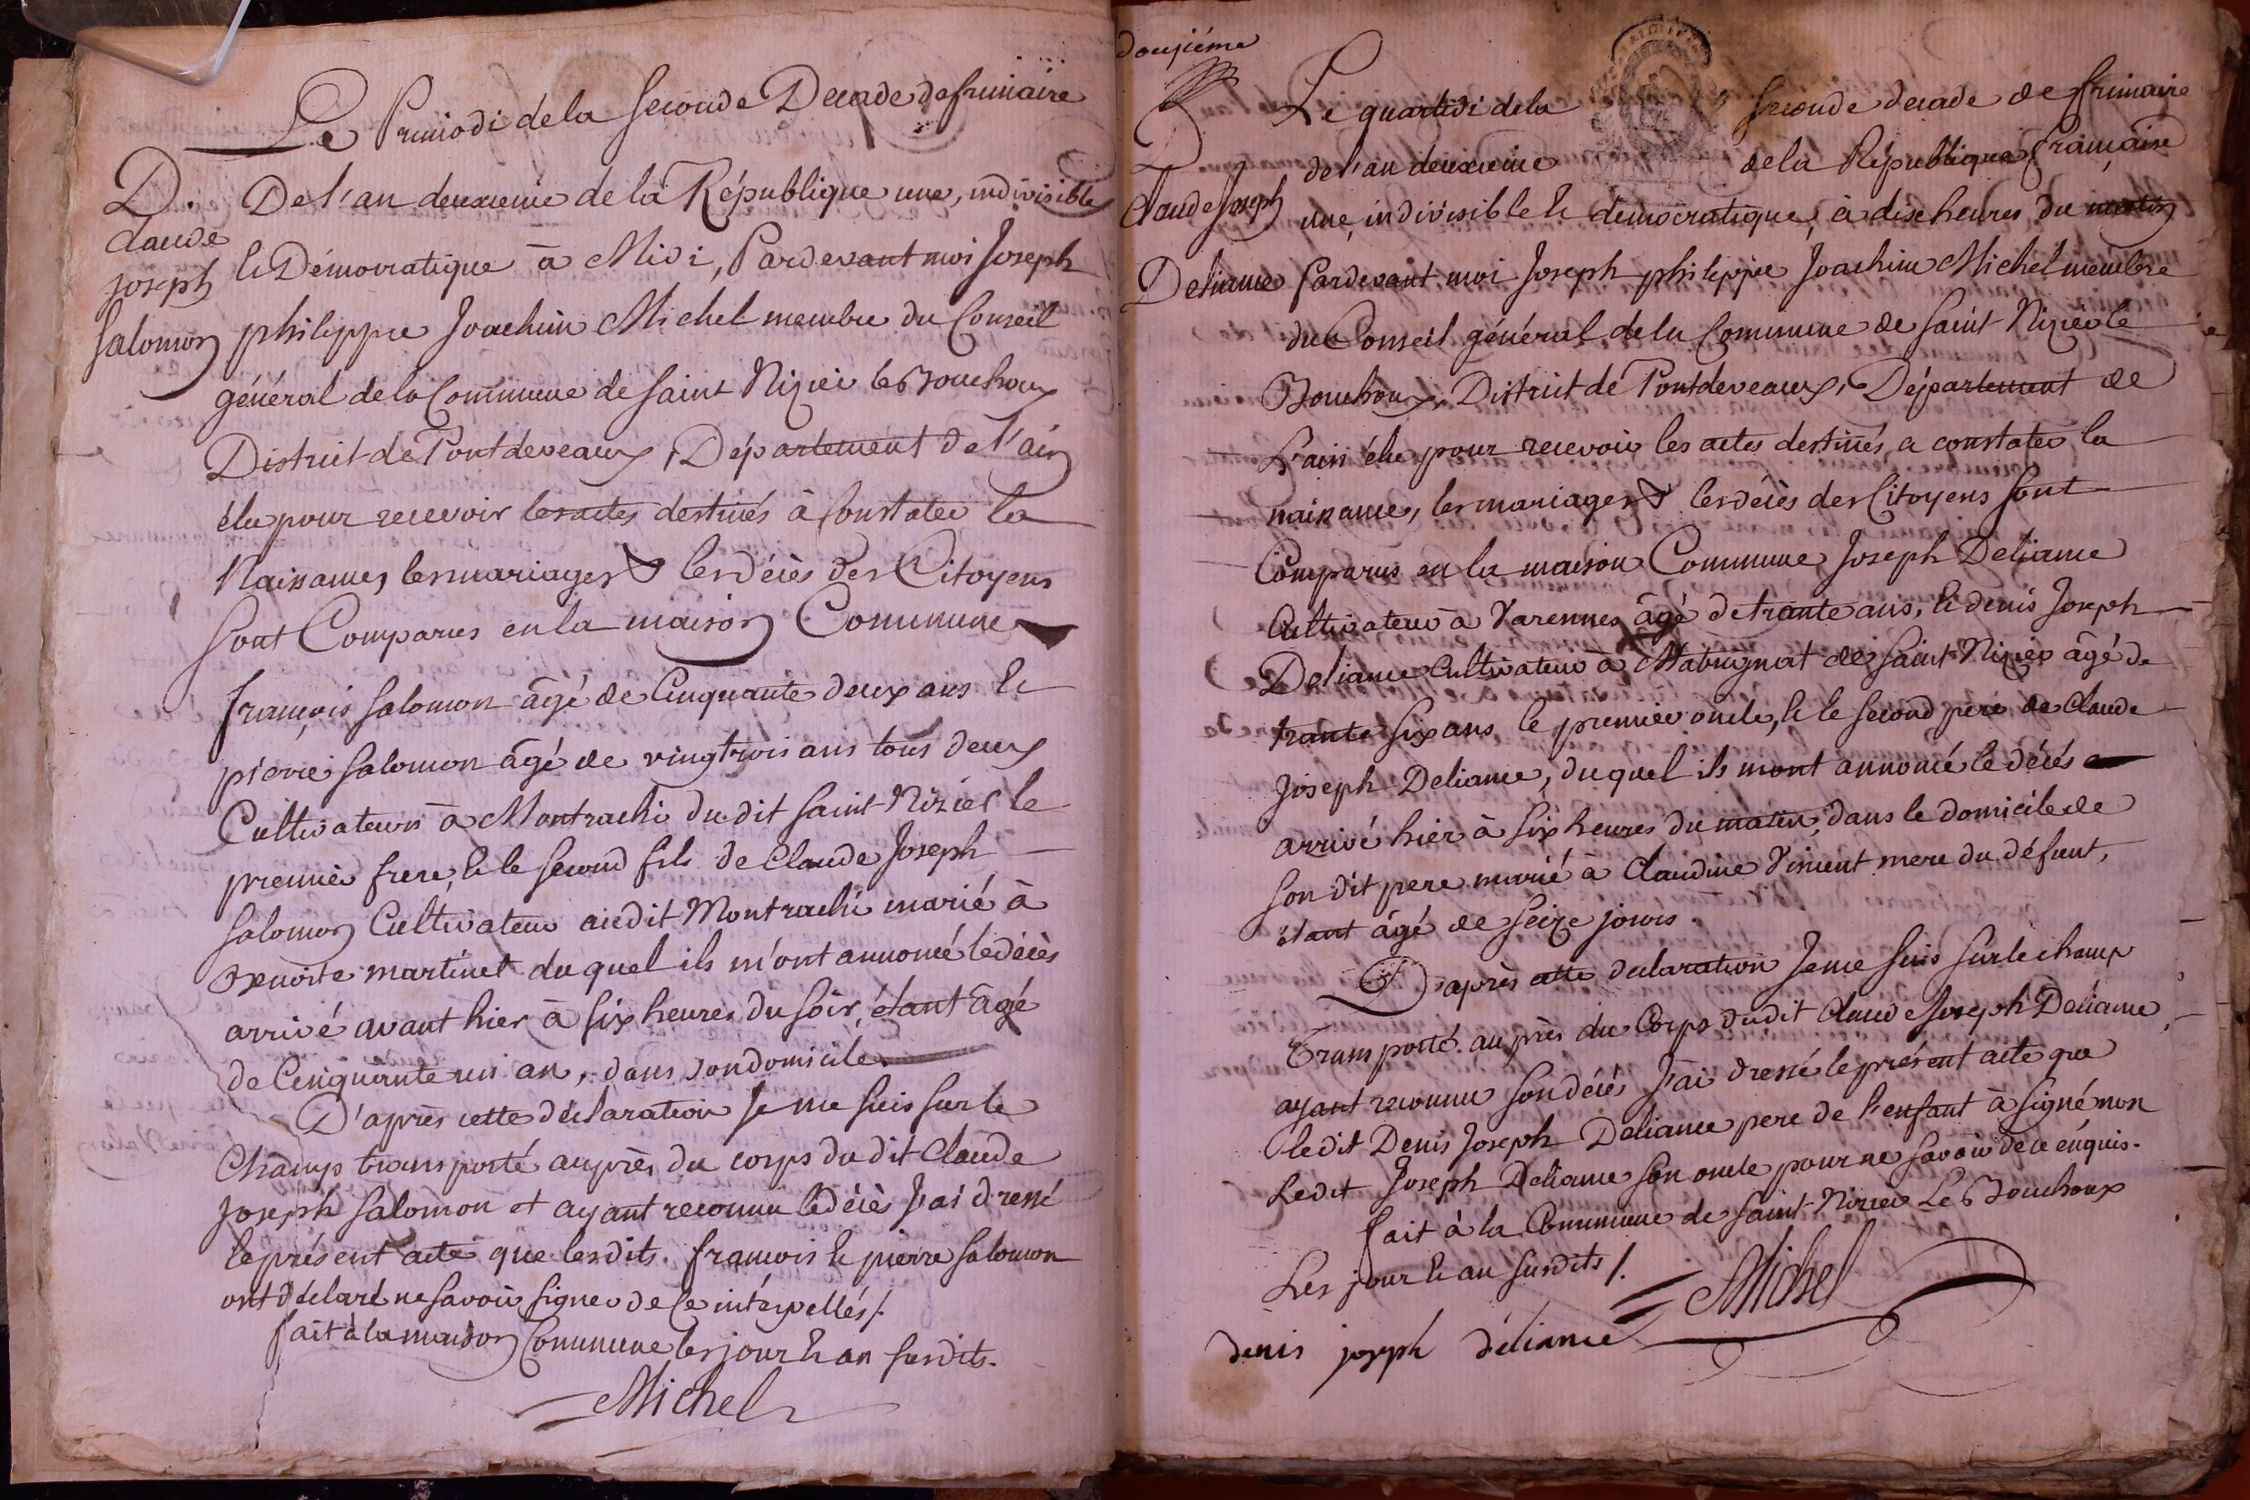 Le Primodi de la seconde Decade de frimaire
D.
Claude
joseph
salomon
De l'an deuxieme de la République une, indivisible
& Démocratique à Midi, Pardevant moi Joseph
philippe Joachim Michel membre du Conseil
général de la Commune de saint Nizier le Bouchoux
District de Pontdeveaux, Département de l'ain
élu pour recevoir les actes destinés à Constater la
Naissances, les mariages & les décès des Citoyens
sont Comparus en la maison Commune
françois salomon âgé de Cinquante deux ans &
pierre salomon âgé de vingt trois ans tous deux
Cultivateurs à Montrachi du dit saint-Nizier le
premier frere, & le second fils de Claude Joseph
salomon Cultivateur audit Montrachi marié à
Benoite martinet du quel ils m'ont annoncé le décès
arrivé avant hier à six heures du soir, étant âgé
de Cinquante un an, dans son domicile.
D'après cette déclaration Je me suis sur le
Champs transporté auprès du corps du dit Claude
Joseph salomon et ayant reconnu le décès J'ai dressé
le présent acte que lesdits. françois & pierre salomon
ont déclaré ne savoir signer de Ce interpellés/.
fait à la maison Commune les jour & an susdits.
Michel
douziéme
D
Claude Joseph
Deliance
Le quartidi de la seconde decade de frimaire
de l'an deuxieme de la République française
une, indivisible & démocratique, à dise heures du matin
Pardevant moi Joseph philippe Joachim Michel membre
du Conseil général de la Commune de saint Nizier le
Bouchoux, District de Pontdeveaux, Département de
L'ain élu pour recevoir les actes destinés a constater la
naissances, les mariages & les décès des Citoyens sont
Comparus en la maison Commune Joseph Deliance
Cultivateur à Varennes âgé de trante ans, & denis Joseph
Deliance Cultivateur à Mabrignat de saint Nizier âgé de
trante six ans le premier oncle, & le second pere de Claude
Joseph Deliance, du quel ils mont annoncé le décés
arrivé hier à six heures du matin, dans le domicile de
son dit pere marié à Claudine Vincent mere du défunt,
étant âgé de seize jours.
D'après cette declaration Je me suis sur le champ
Transporté auprès du Corps dudit Claude Joseph Deliance
ayant reconnu son décés, J'ai dressé le présent acte que
ledit Denis Joseph Deliance pere de l'enfant à signé non
Ledit Joseph Deliance son oncle pour ne savoir de ce enquis.
fait à la Commune de saint-Nizier Le Bouchoux
Les jour & an susdits/.
Michel
denis joseph déliance